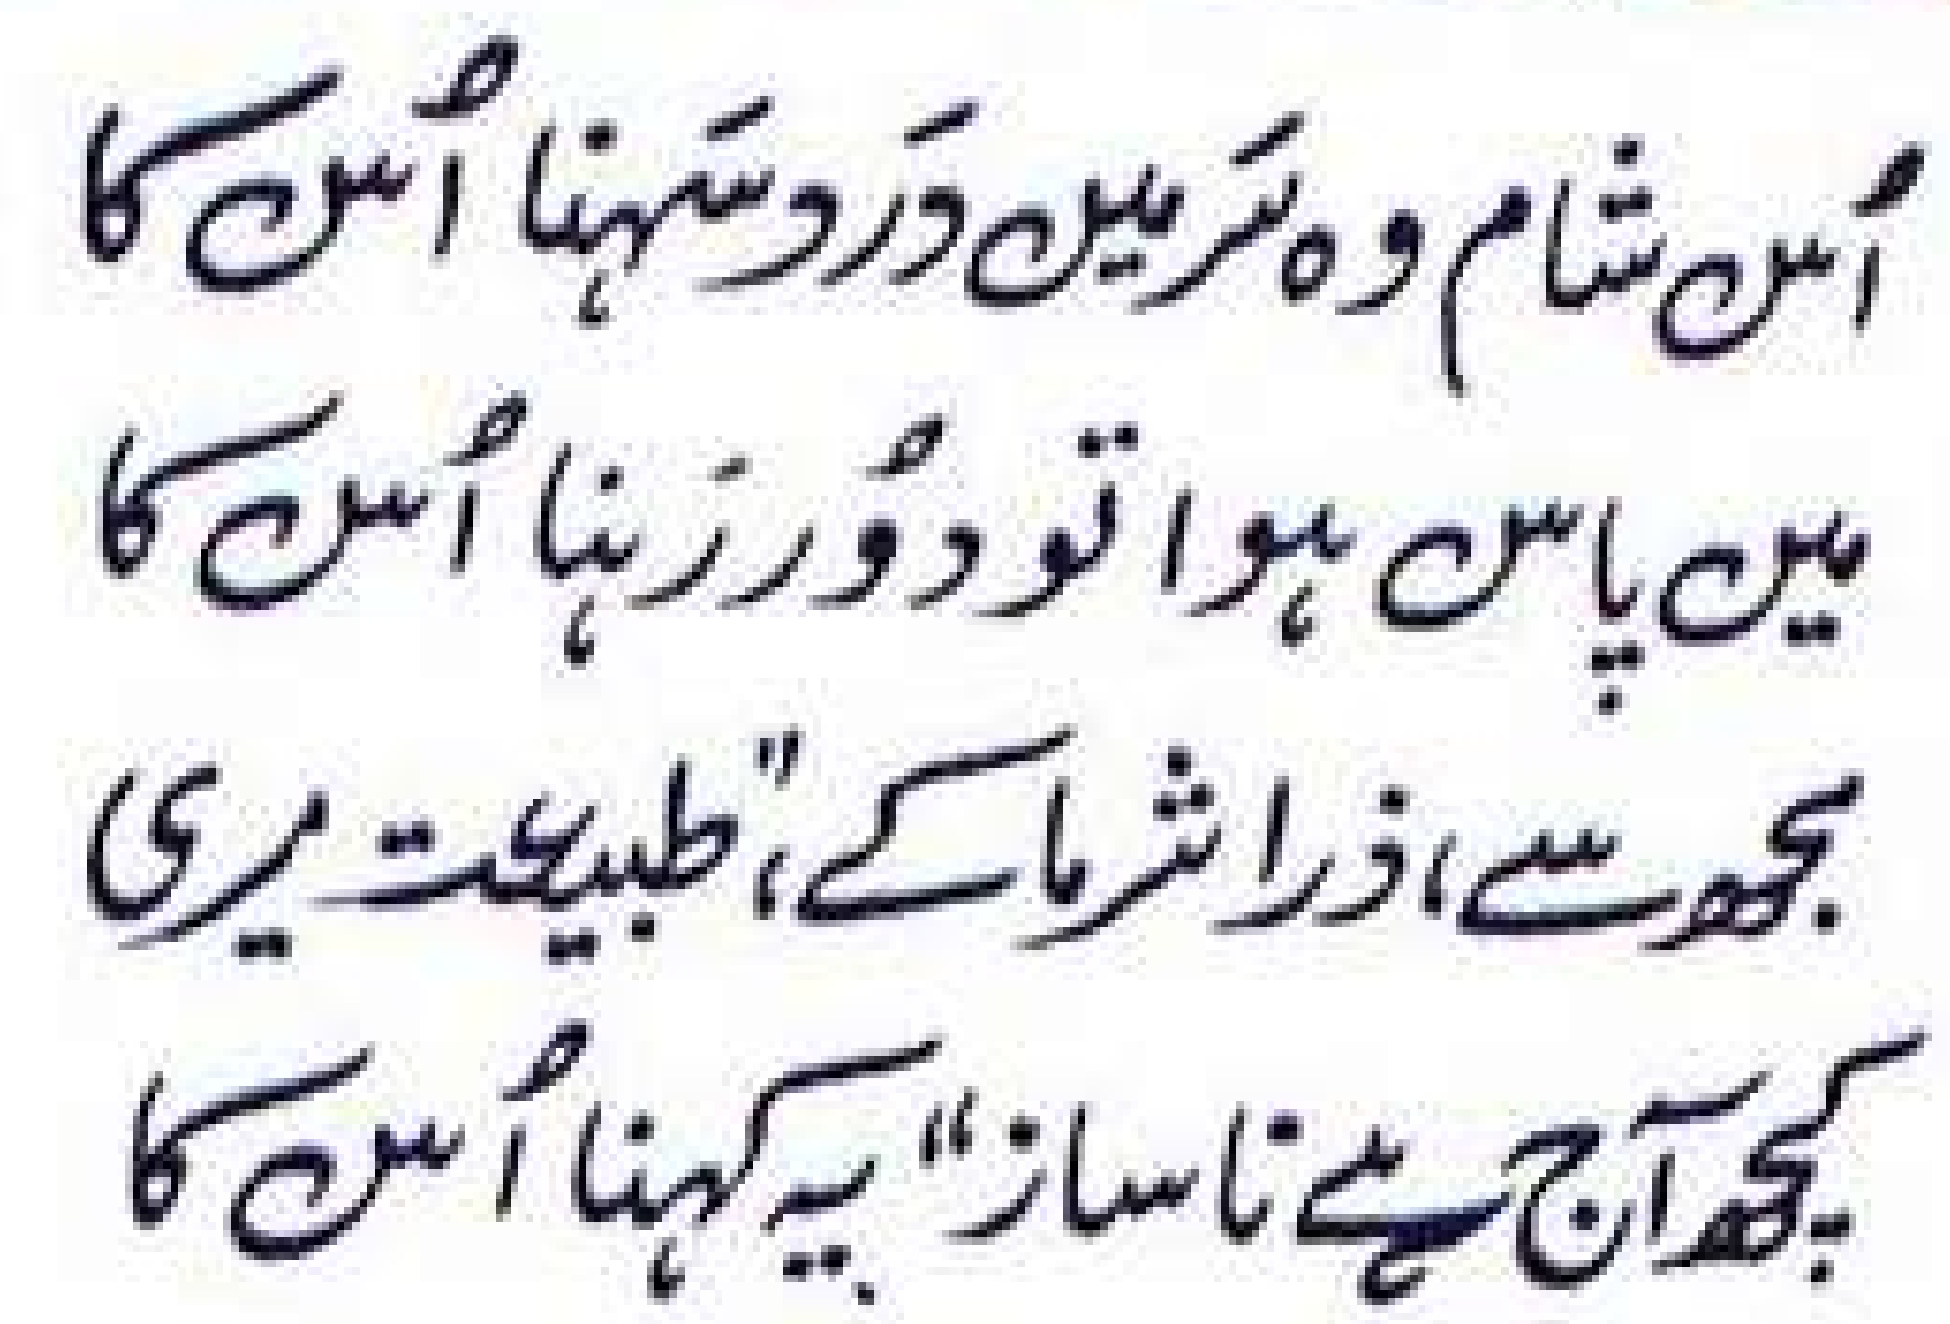 اُس شام وہ سَر میں دَرد سَہنا اُس کا
میں پاس ہوا تو دُور رَہنا اُس کا
مجھ سے، ذرا شرما کے، "طبیعت میری
کچھ آج ہے ناساز" یہ کہنا اُس کا